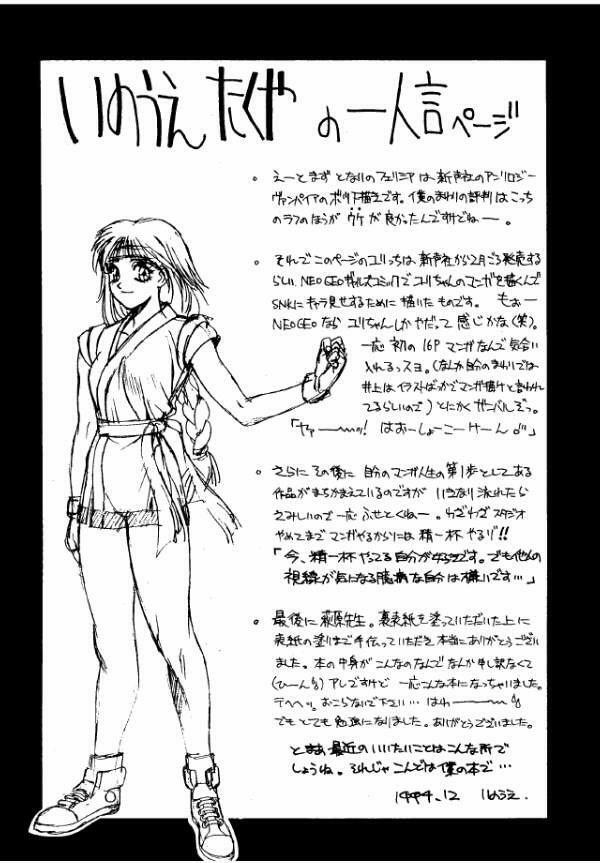 いのうえ たくや の 一人言 ページ
。えーと まず となりの フェリシア は、新声社のアンソロジー
ヴァンパイアの ボツ下描き です。僕のまわりの評判は こっち
のラフのほうが ウケ が 良かったんですけどねー。
。それで このページの ユリっちは 新声社から 2月ごろ発売する
らしい NEO GEO ギャルズコミックで ユリちゃんの マンガを描くんで
SNKに キャラ見せするために 描いた ものです。 もぉー
NEO GEO なら ユリちゃんしか やだって 感じかな(笑)。
一応 初の 16P マンガなんで 気合い
入れるっスヨ。(なんか自分のまわりでは
井上は イラストばっかで マンガ描けと 言われ
てるらしいので) とにかく ガンバルぞっ。
「ヤァーーーッ! はおーしょーこーけーん」
。さらに その後に 自分の マンガ人生の 第1歩 として ある
作品が まちかまえているのですが いきなり 流れたら
さみしいので 一応 ふせとくねー。わざわざ スタジオ
やめてまで マンガやるからには 精一杯 やるゾ!!
「今、精一杯やってる自分が好きです。でも他人の
視線が気になる臆病な自分は嫌いです…」
。最後に 萩原先生。裏表紙を塗っていただいた上に
表紙の塗りまで手伝っていただき 本当に ありがとうござい
ました。本の中身が こんなのなんで なんか申し訳なくて
(ひーん) アレですけど 一応こんな本になっちゃいました。
テヘヘッ。おこらないで下さい… はわーーー
でも とても 勉強になりました。ありがとうございました。
とまあ 最近の いいたいことは こんな所で
しょうね。それじゃ こんどは 僕の本で…
1994.12 いのうえ.